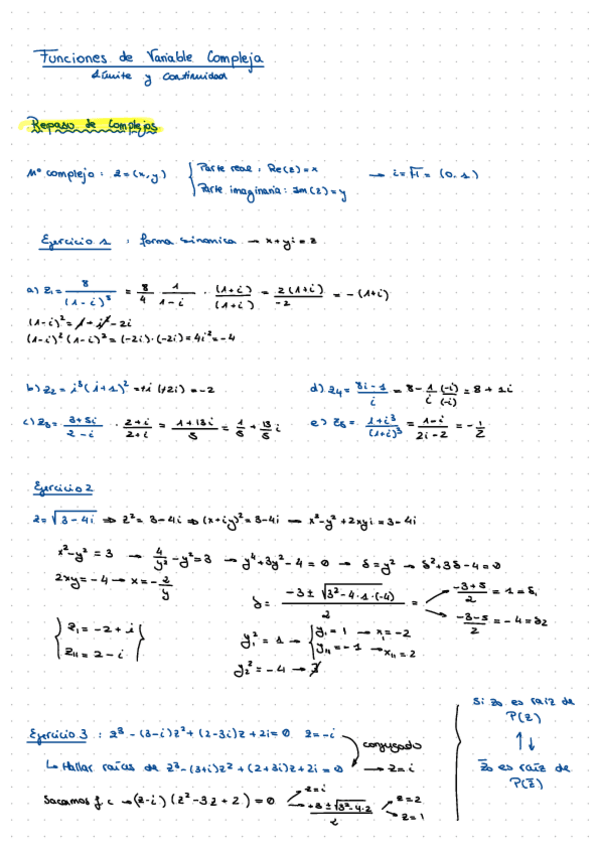 Funciones de Variable Compleja
Límite y Continuidad
Repaso de Complejos
Nº complejo: z=(x,y) { Parte real: Re(z)=x → i=√-1 = (0,1)
Parte imaginaria: Im(z)=y
Ejercicio 1 : forma binomica → x+yi=z
a) z₁= 8/(1-i)⁵ = 8/4 1/1-i · (1+i)/(1+i) = 2(1+i)/-2 = -(1+i)
(1-i)²= 1+i²-2i
(1-i)²(1-i)²=(-2i)·(-2i)=4i²=-4
b) z₂= i⁵(i+1)² =+i(+2i)=-2
d) z₄= 8i-1/i = 8- 1/i (-i)/(-i) = 8+1i
c) z₃= 3+5i/2-i · 2+i/2+i = 1+13i/5 = 1/5 + 13/5 i
e) z₅= 1+i³/(1+i)³ = 1-i/2i-2 = -1/2
Ejercicio 2
z=√3-4i ⇒ z²= 3-4i ⇒ (x+iy)²=3-4i → x²-y²+2xyi=3-4i
x²-y²=3 → 4/y² -y²=3 → y⁴+3y²-4=0 → δ=y² → δ²+3δ-4=0
2xy=-4 → x=-2/y
δ= -3±√3²-4·1·(-4)/2 = -3+5/2 =1=δ₁
-3-5/2 =-4=δ2
{ z₁=-2+i }
zᵢᵢ=2-i
y₁²=1 → { yᵢ=1 → xᵢ=-2
yᵢᵢ=-1 → xᵢᵢ=2
y₂²=-4 → ∄
Si zo es raíz de
P(z)
↑↓
z̄o es raíz de
P(z̄)
Ejercicio 3 : z³-(3-i)z²+(2-3i)z+2i=0 z=-i
conjugado
↳ Hallar raíces de z³-(3+i)z²+(2+3i)z+2i=0 → z=i
Sacamos f.c → (z-i)(z²-3z+2)=0 z=i
+3±√3²-4·2/2 z=2
z=1